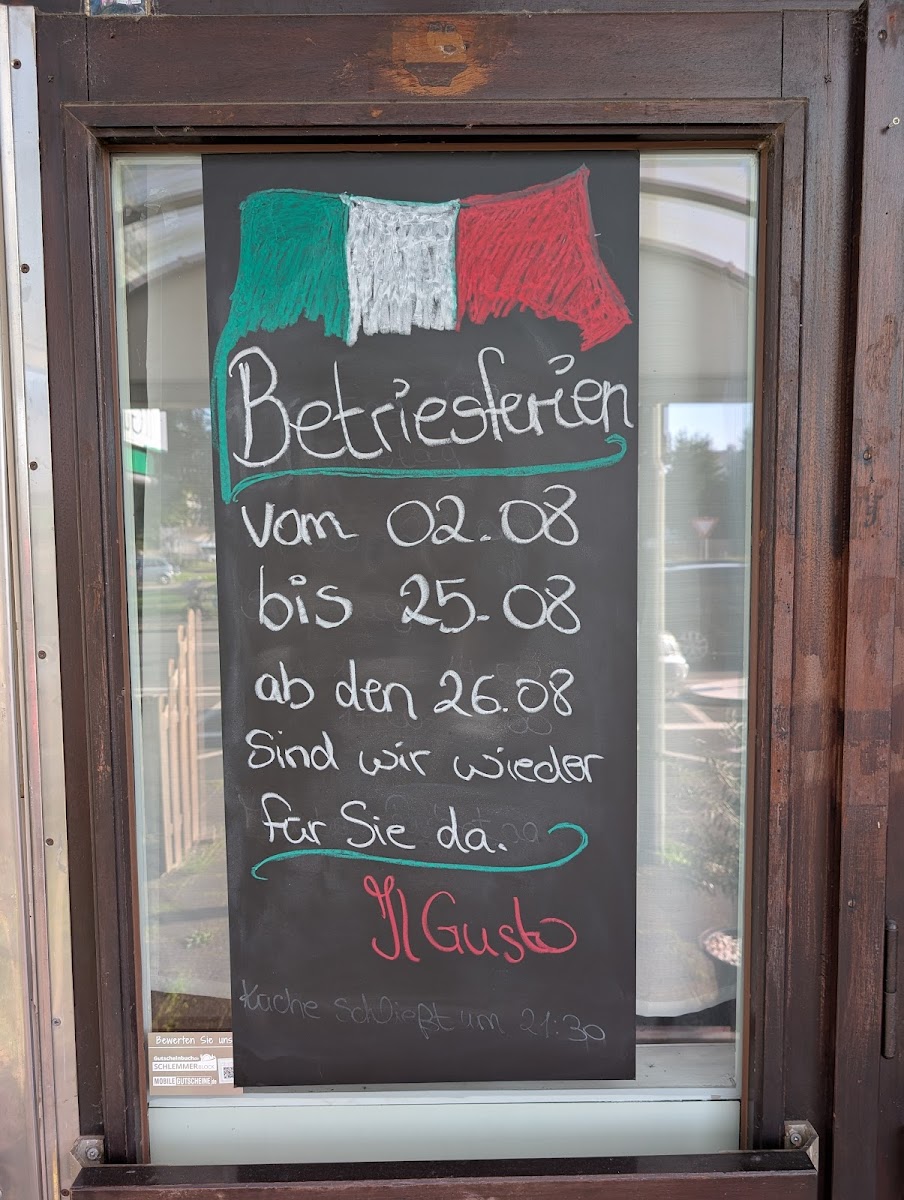 Betriesferien
vom 02.08
bis 25.08
ab den 26.08
Sind wir wieder
für Sie da.
Il Gusto
Küche schließt um 21:30
Bewerten Sie uns
Gutscheinbuch.de
SCHLEMMERBLOCK
MOBILEGUTSCHEINE.de